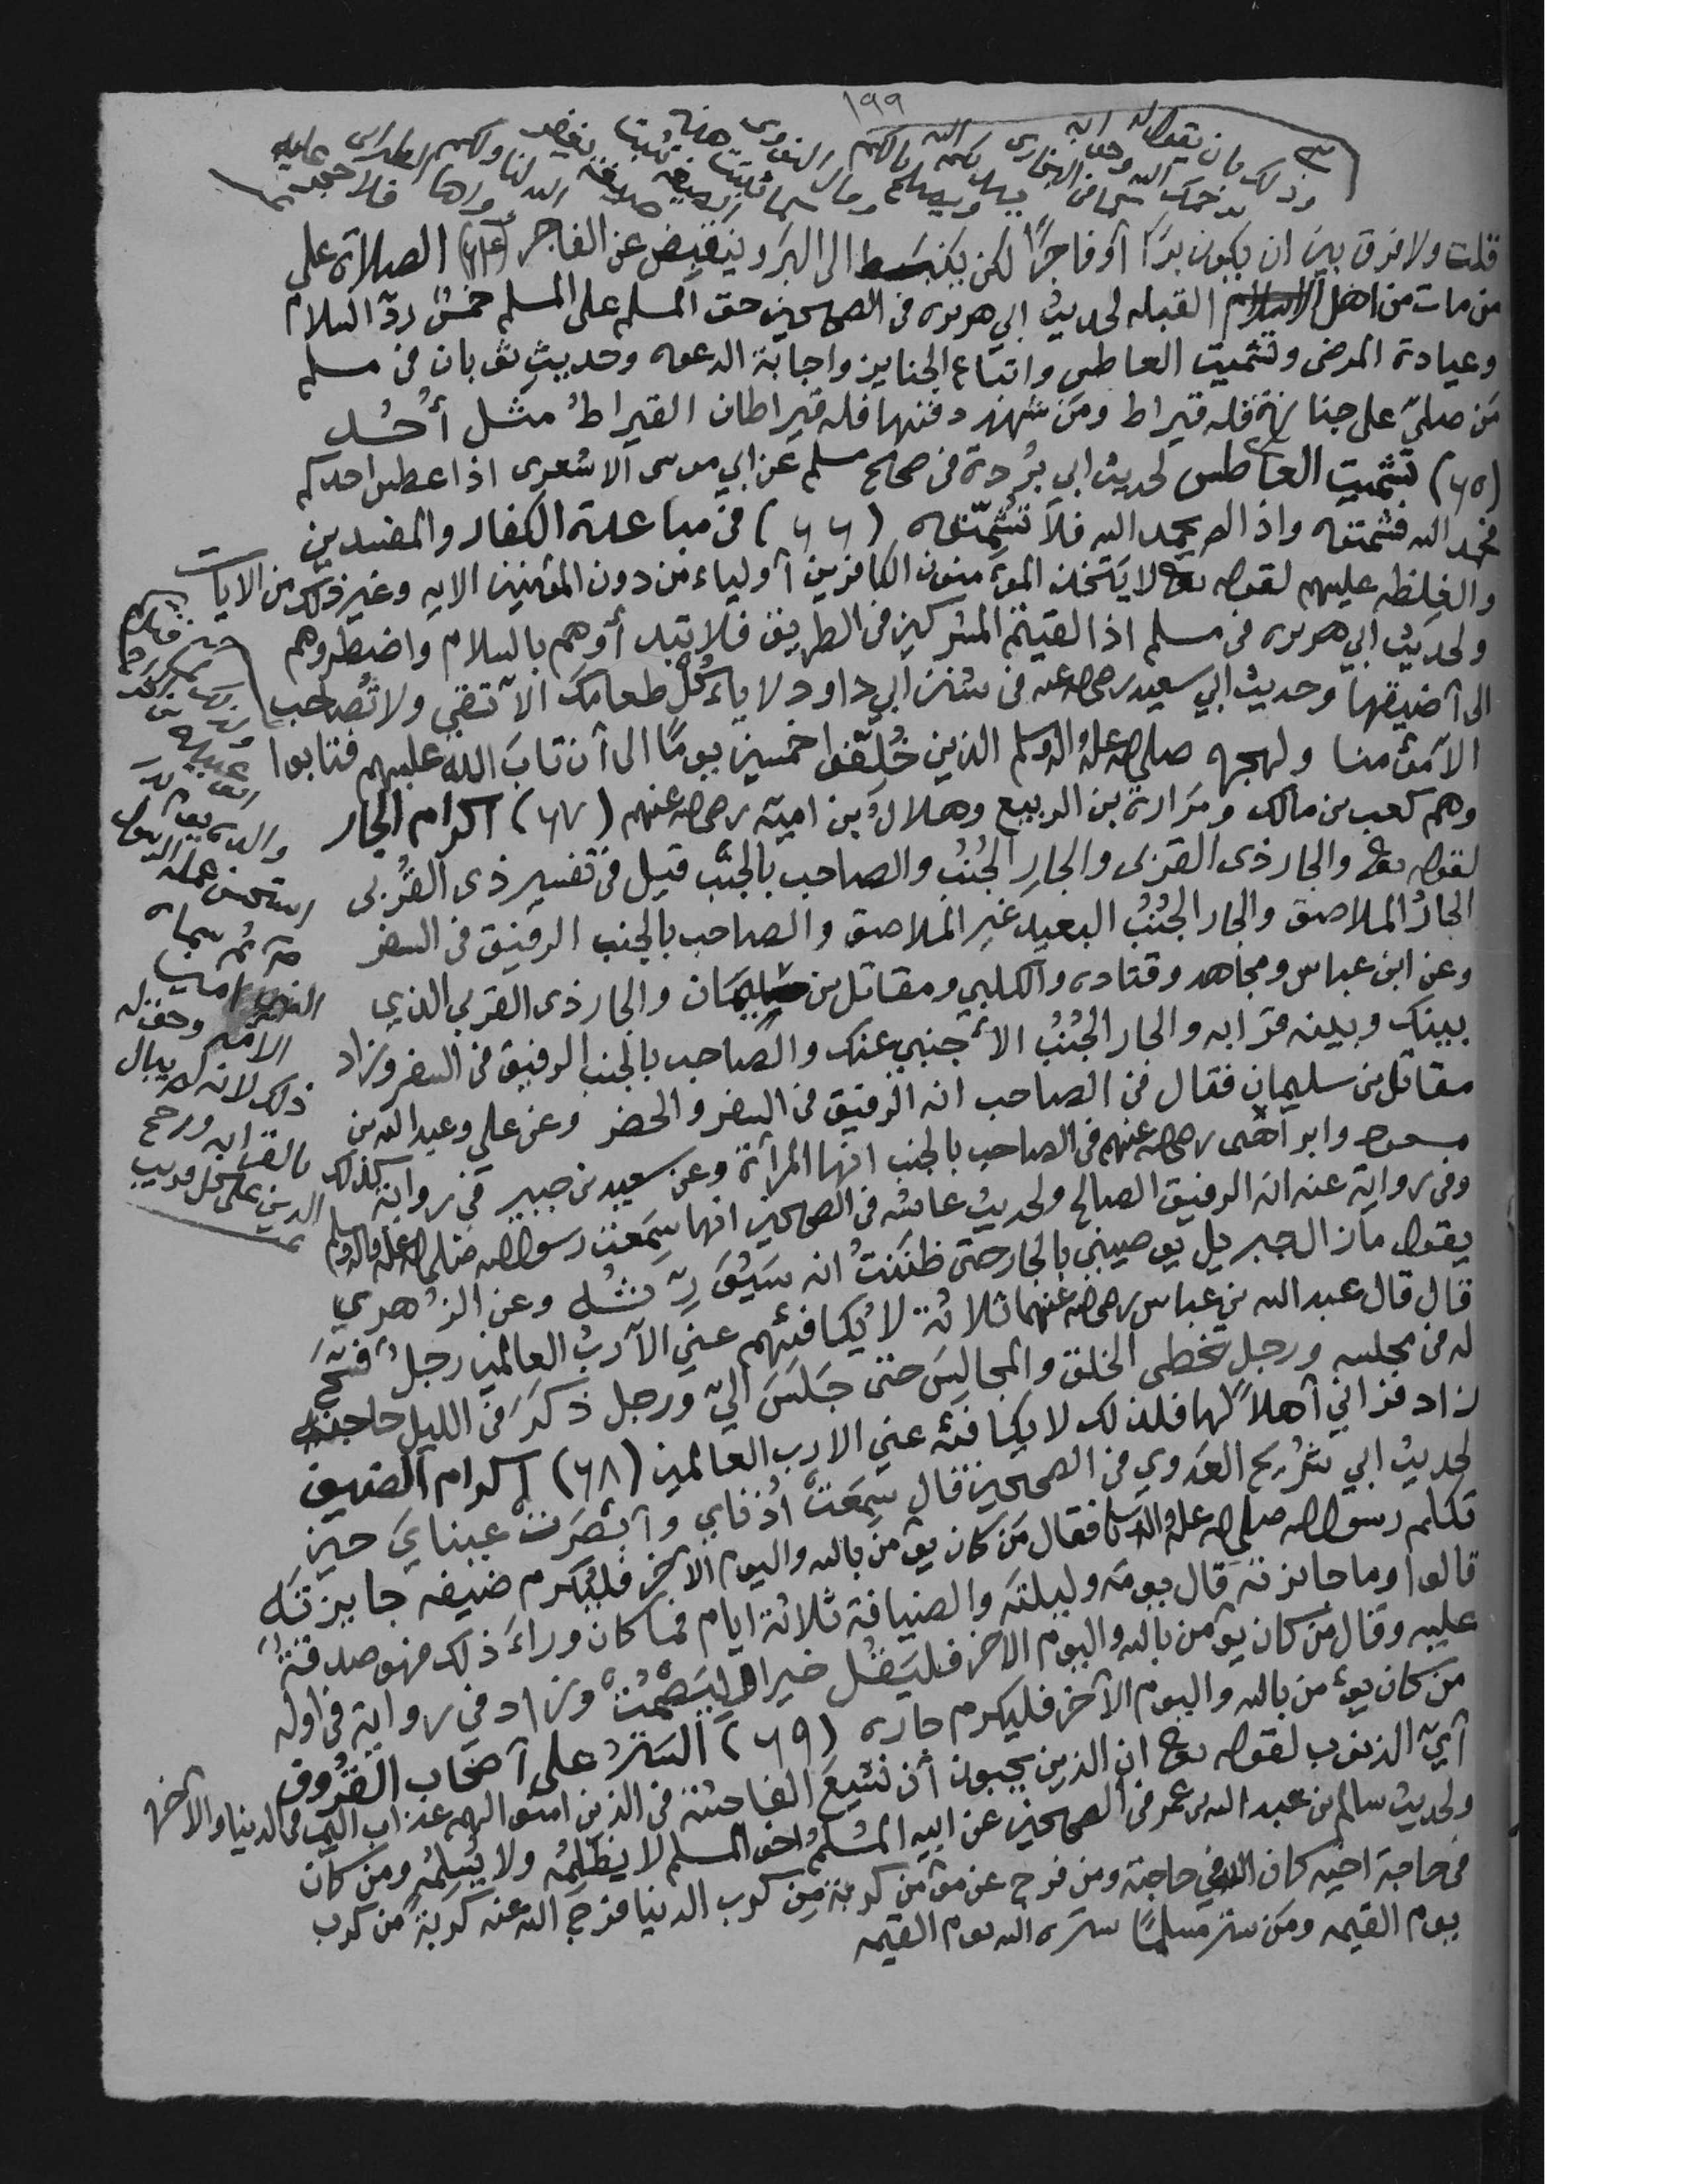 ١٩٩
قلت ولا فرق بين ان يكون برًا أو فاجرًا لكن ينبسط الى البر وينقبض عن الفاجر (٦٤) الصلاة على
من مات من اهل القبله لحديث ابي هريره في الصحيحين حق المسلم على المسلم خمس ردّ السلام
وعيادة المرضى وتشميت العاطس واتباع الجنايز واجابة الدعوه وحديث ثوبان في مسلم
مَن صلىّ على جنازة فله قيراط ومَن شهد دفنها فله قيراطان القيراطُ مثل أُحُد
(٦٥) تشميت العاطس لحديث ابي بُردة في صحيح مسلم عن ابي موسى الاشعرى اذا عطس احدكم
فحمد الله فشمتوه واذا لم يحمد الله فلا تشمّتوه (٦٦) في مباعدة الكفار والمفسدين
والغلظه عليهم لقوله تعالى لا يتخذ المؤمنون الكافرين أولياء من دون المؤمنين الايه وغير ذلك من الايات
ولحديث ابي هريره في مسلم اذا لقيتم المشركين في الطريق فلا تبدأوهم بالسلام واضطروهم
الى أضيقها وحديث ابي سعيد رضي الله عنه في سنن ابي داود لا يأكُل طعامك الا تقي ولا تُصاحب
الا مؤمنا ولهجره صلى الله عليه واله وسلم الذين خُلّفوا خمسين يومًا الى أن تابَ الله عليهم فتابوا
وهم كعب بن مالك ومَرارة بن الربيع وهلالُ بن امية رضي الله عنهم (٦٧) اكرام الجار
لقوله تعالى والجار ذى القربى والجارِ الجُنُبِ والصاحب بالجنب قيل في تفسير ذى القُربى
الجارُ الملاصق والجار الجُنُبُ البعيد غير الملاصق والصاحب بالجنب الرفيق في السفر
وعن ابن عباس ومجاهد وقتاده والكلبي ومقاتل بن سليمان والجار ذى القربى الذي
بينك وبينه قرابه والجار الجُنُبُ الأجنبي عنك والصاحب بالجنب الرفيق في السفر وزاد
مقاتل بن سليمان فقال في الصاحب انه الرفيق في السفر والحضر وعن علي وعبد الله بن
مسعود وابراهيم رضي الله عنهم في الصاحب بالجنب انها المرأة وعن سعيد بن جبير في رواية كذلك
وفي رواية عنه انه الرفيق الصالح ولحديث عائشه في الصحيحين انها سَمِعت رسول الله صلى الله عليه واله وسلم
يقول ما زال جبريل يوصيني بالجار حتى ظننتُ انه سَيُوَرِّثُه وعن الزُهري
قال قال عبد الله بن عباس رضي الله عنهما ثلاثة لا يُكافئهم عني الا ربُ العالمين رجلٌ فسَّح
له في مجلسه ورجل تخطى الخلق والمجالِسَ حتى جَلَسَ اليّ ورجل ذكَرَ في الليل حاجته
زاد فرآني أهلاً لها فلذلك لا يكافئه عني الا رب العالمين (٦٨) اكرام الضيف
لحديث ابي شُريح العَدَوي في الصحيحين قال سَمِعَتْ اُذناي وأبصَرَتْ عيناي حين
تكلم رسول الله صلى الله عليه واله وسلم فقال مَن كان يؤمن بالله واليوم الآخر فليُكرم ضيفه جايزتَه
قالوا وما جائزته قال يومَه وليلتَه والضيافة ثلاثة ايام فما كان وراءَ ذلك فهو صدقةٌ
عليه وقال مَن كان يؤمن بالله واليوم الاخر فليَقُل خيرا او ليَصمُتْ وزاد في رواية في اوله
مَن كان يؤمن بالله واليوم الآخر فليكرم جاره (٦٩) السَترُ على أصحاب القُروف
أيّ الذنوب لقوله تعالى ان الذين يحبون أن تشيع الفاحشة في الذين امنوا لهم عذاب اليم في الدنيا والآخره
ولحديث سالم بن عبد الله بن عمر في الصحيحين عن ابيه المسلمُ اخو المسلم لا يظلمُه ولا يُسلِمُه ومَن كان
في حاجة اخيه كان الله في حاجته ومن فرج عن مؤمن كربة مِن كرب الدنيا فرّجَ الله عنه كربةً من كرب
يوم القيمه ومَن ستر مسلمًا ستره الله يوم القيمه